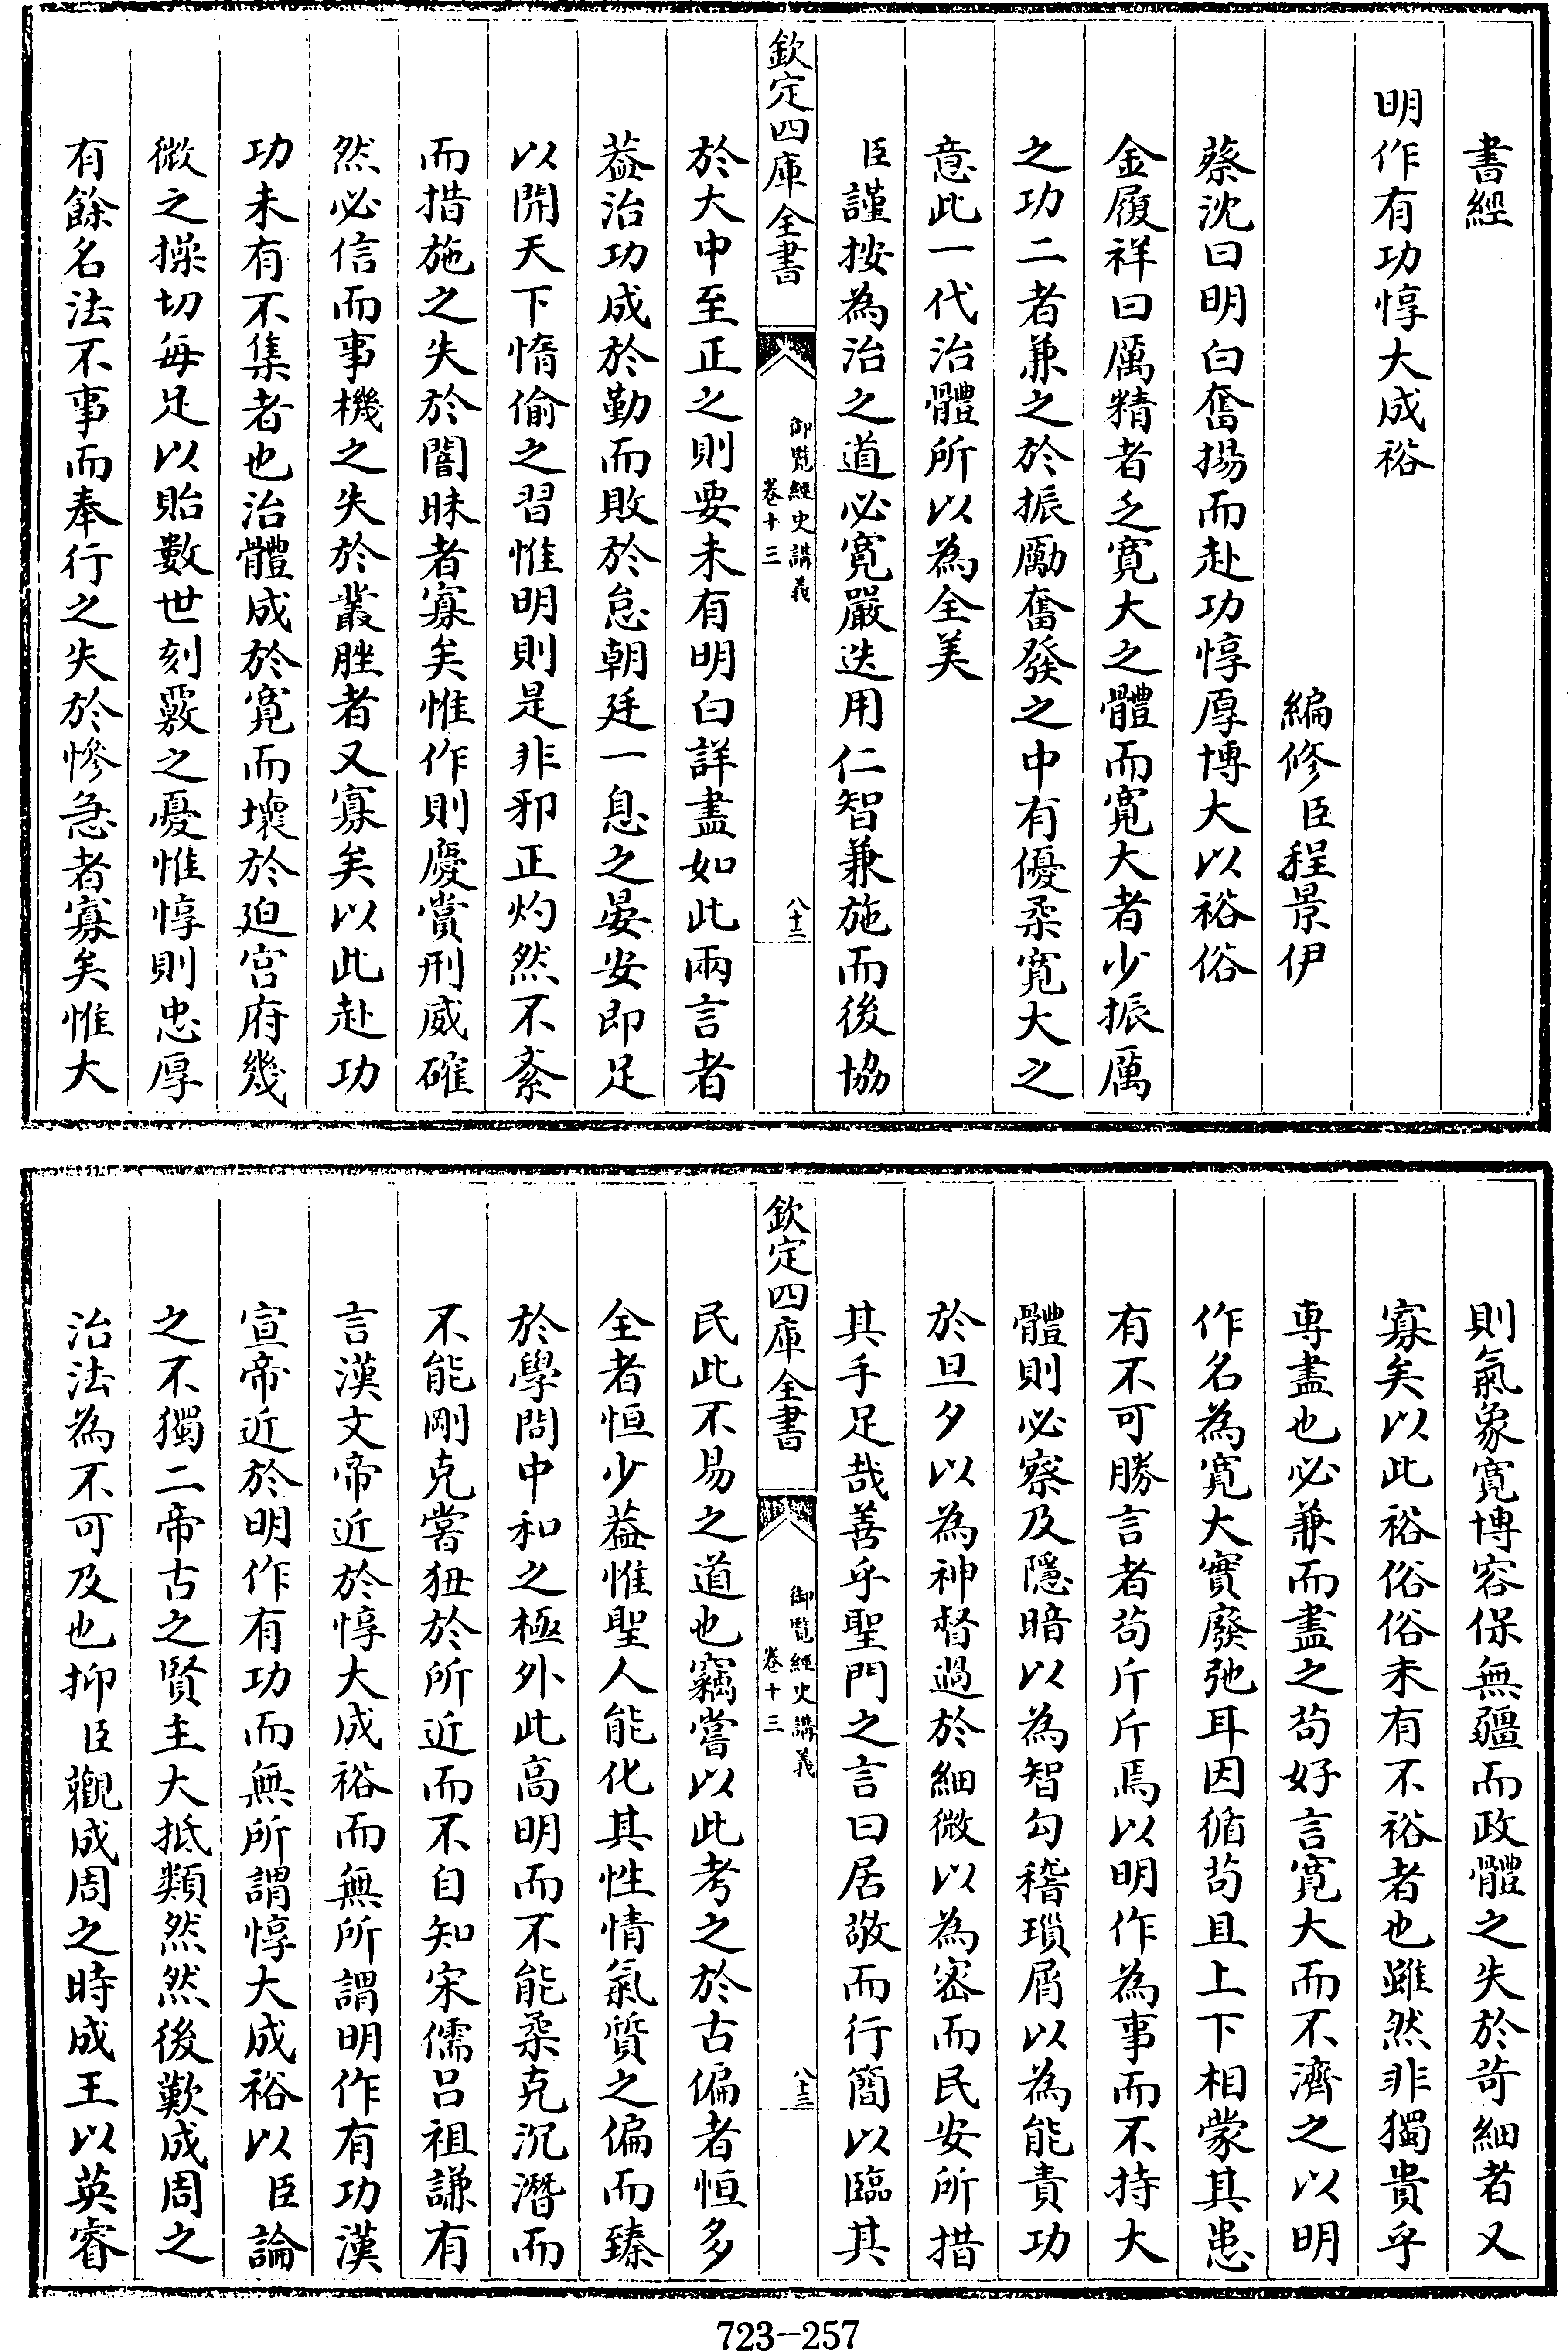 書經
明作有功惇大成裕
編修臣程景伊
蔡沈曰明白奮揚而赴功惇厚博大以裕俗
金履祥曰厲精者乏寛大之體而寛大者少振厲
之功二者兼之於振勵奮發之中有優柔寛大之
意此一代治體所以為全美
臣謹按為治之道必寛嚴迭用仁智兼施而後協
欽定四庫全書
御覧經史講義
卷十三
八十二
於大中至正之則要未有明白詳盡如此兩言者
葢治功成於勤而敗於怠朝廷一息之晏安即足
以開天下惰偷之習惟明則是非邪正灼然不紊
而措施之失於闇昧者寡矣惟作則慶賞刑威確
然必信而事機之失於叢脞者又寡矣以此赴功
功未有不集者也治體成於寛而壞於廹宫府幾
微之操切每足以貽數世刻覈之憂惟惇則忠厚
有餘名法不事而奉行之失於慘急者寡矣惟大
則氣象寛博容保無疆而政體之失於苛細者又
寡矣以此裕俗俗未有不裕者也雖然非獨貴乎
專盡也必兼而盡之茍好言寛大而不濟之以明
作名為寛大實廢弛耳因循茍且上下相蒙其患
有不可勝言者茍斤斤焉以明作為事而不持大
體則必察及隱暗以為智勾稽瑣屑以為能責功
於旦夕以為神督過於細微以為宻而民安所措
其手足哉善乎聖門之言曰居敬而行簡以臨其
欽定四庫全書
御覧經史講義
卷十三
八十三
民此不易之道也竊嘗以此考之於古偏者恒多
全者恒少葢惟聖人能化其性情氣質之偏而臻
於學問中和之極外此高明而不能柔克沉潛而
不能剛克嘗狃於所近而不自知宋儒呂祖謙有
言漢文帝近於惇大成裕而無所謂明作有功漢
宣帝近於明作有功而無所謂惇大成裕以臣論
之不獨二帝古之賢主大抵類然然後歎成周之
治法為不可及也抑臣觀成周之時成王以英睿
723-257